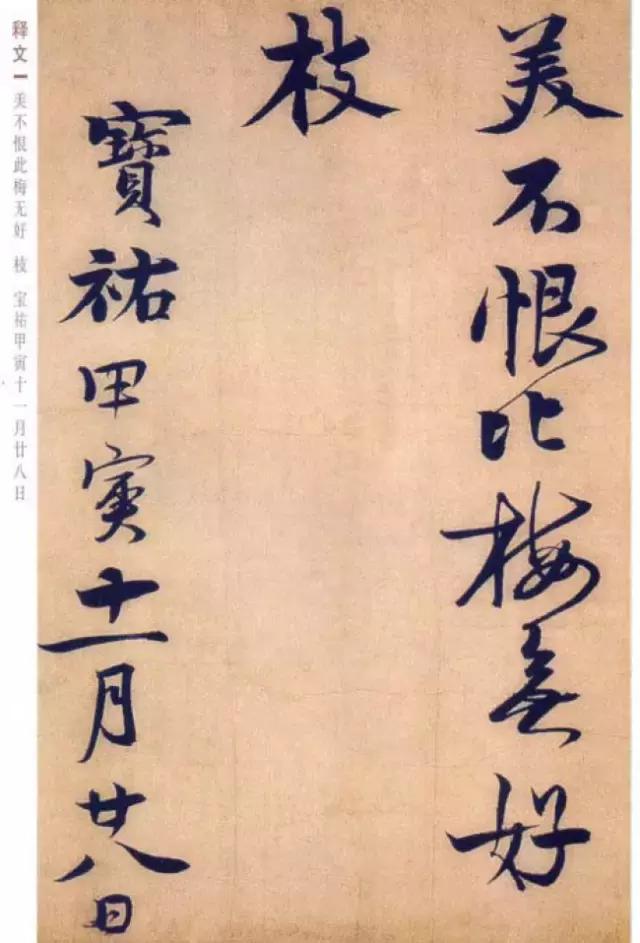 美不恨此梅無好
枝
寶祐甲寅十一月廿八日
释文
美不恨此梅无好 枝 宝祐甲寅十一月廿八日